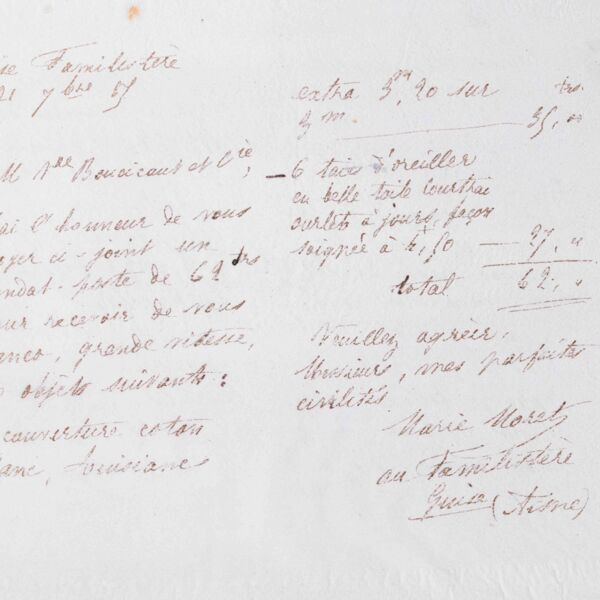 se Familistère
21 7bre 85
M Vve Boucicaut et Cie,
ai l'honneur de vous
oyer ci-joint un
ndat-poste de 62 frs
our recevoir de vous
anco, grande vitesse,
objets suivants :
couverture coton
lanc,
extra 3m,20 sur frs.
3m 35, "
- 6 taies d'oreiller
en belle toile courtrai
ourlets à jours, façon
soignée à 4f,50 — 27, "
total 62, "
Veuillez agréer,
Messieurs, mes parfaites
civilités
Marie Moret
au Familistère
Guise (Aisne)